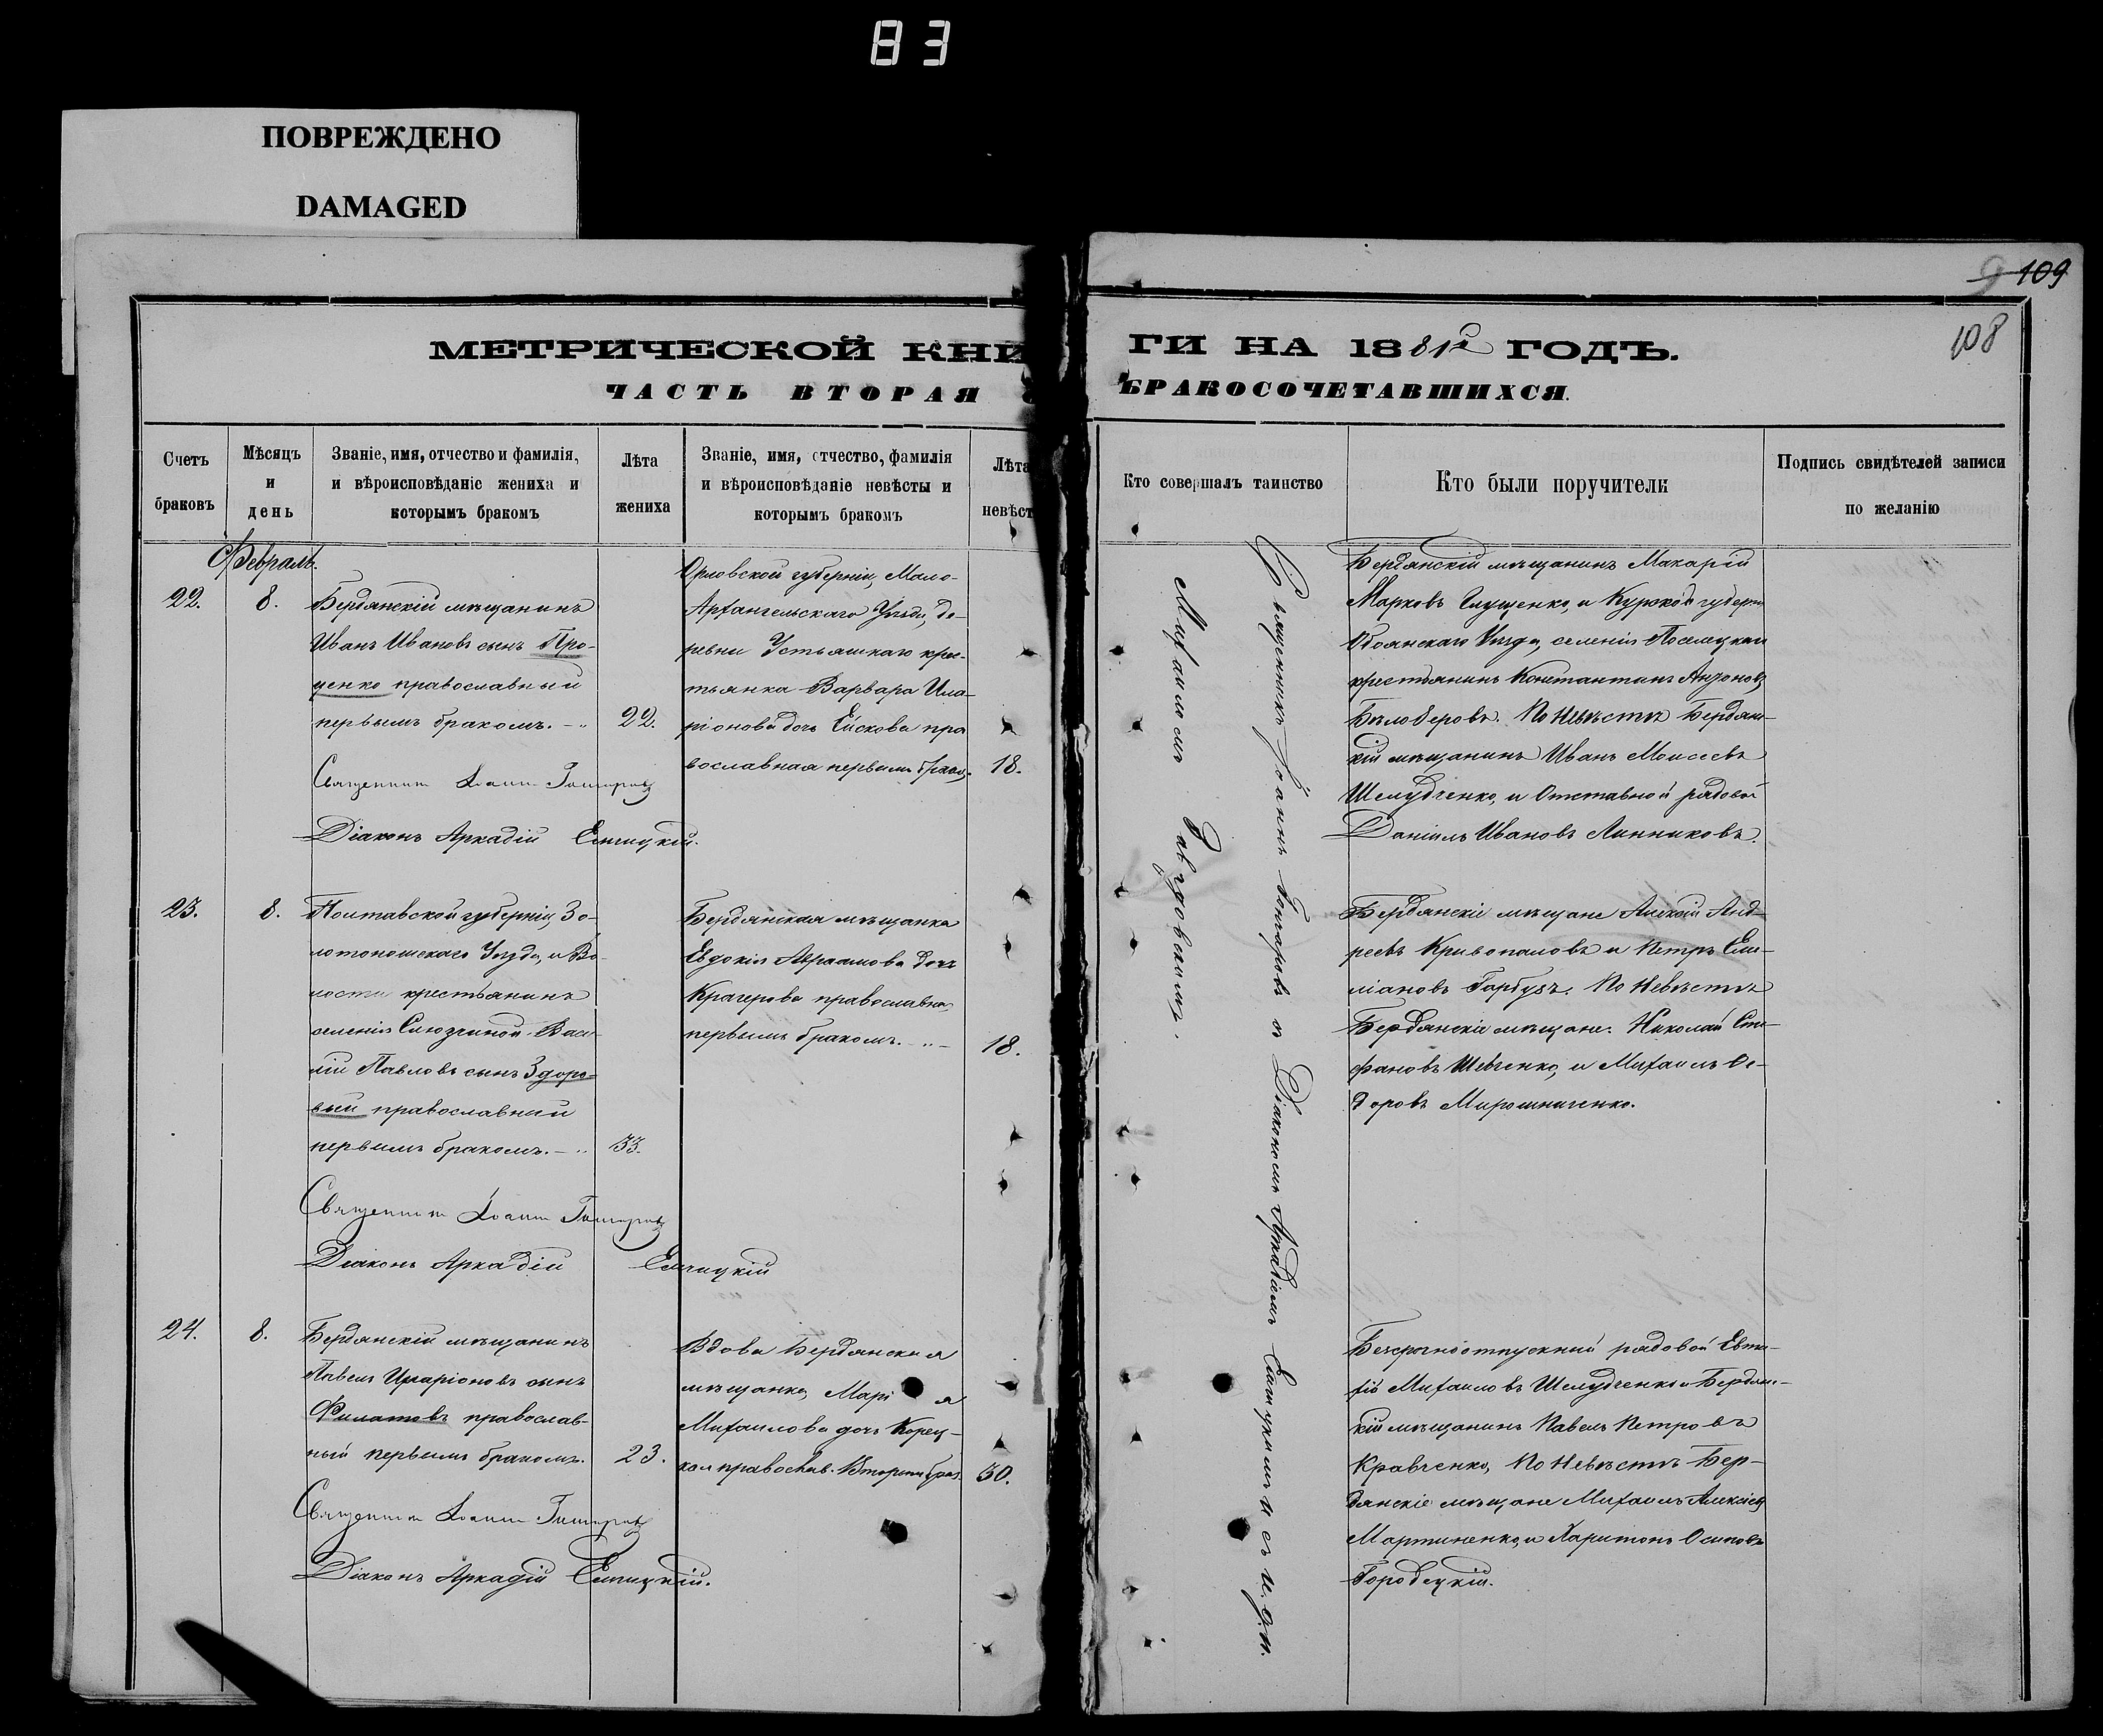 83
ПОВРЕЖДЕНО
DAMAGED
109
108
МЕТРИЧЕСКОЙ КНИ
ГИ НА 1881й ГОДЪ.
ЧАСТЬ ВТОРАЯ
БРАКОСОЧЕТАВШИХСЯ.
Счетъ
браковъ
Мѣсяцъ
и
день
Званіе, имя, отчество и фамилія,
и вѣроисповѣданіе жениха и
которымъ бракомъ
Лѣта
жениха
Званіе, имя, отчество, фамилія
и вѣроисповѣданіе невѣсты и
которымъ бракомъ
Лѣта
невѣст
Кто совершалъ таинство
Кто были поручители
Подпись свидѣтелей записи
по желанію
Февраль.
22.
8.
Бердянскій мѣщанинъ
Иванъ Ивановъ сынъ Про-
ценко православный
первымъ бракомъ.
22.
Орловской губерніи, Мало-
Архангельскаго Уѣзда, де-
ревни крес-
тьянка Варвара Ила-
ріонова дочь пра
вославная первымъ браком.
18.
Священникъ Іоаннъ Гончаровъ
Діаконъ Аркадій
Священникъ Іоаннъ Гончаровъ съ Діакономъ Аркадіемъ и съ и.д.п.
Михаиломъ
Бердянскій мѣщанинъ Макарій
Марковъ Глущенко, и Курской губерніи
Обоянскаго Уѣзда, селенія
крестьянинъ Константинъ
Бѣлобровъ. По Невѣстѣ Бердян-
скій мѣщанинъ Иванъ Моисеевъ
Шелудченко, и Отставной рядовой
Даніилъ Ивановъ Линниковъ.
23.
8.
Полтавской губерніи, Зо-
лотоношскаго Уѣзда, и Во-
лости крестьянинъ
селенія Васи-
лій Павловъ сынъ Здоро-
вый православный
первымъ бракомъ.
33.
Бердянская мѣщанка
Евдокія Авраамова дочь
православная
первымъ бракомъ.
18.
Священникъ Іоаннъ Гончаровъ
Діаконъ Аркадій
Бердянскіе мѣщане Алексѣй Анд-
реевъ Кривопаловъ и Петръ Еме-
ліановъ Гарбузъ. По Невѣстѣ
Бердянскіе мѣщане: Николай Сте-
фановъ Шевченко, и Михаилъ Ѳе-
доровъ Мирошниченко.
24.
8.
Бердянскій мѣщанинъ
Павелъ Иларіоновъ сынъ
Филатовъ православ-
ный первымъ бракомъ.
23.
Вдова Бердянская
мѣщанка, Марія
Михаилова дочь Корец-
кая православ. Вторымъ брак.
30.
Священникъ Іоаннъ Гончаровъ
Діаконъ Аркадій
Безсрочноотпускный рядовой Евти-
хій Михаиловъ Шелудченко и Бердян-
скій мѣщанинъ Павелъ Петровъ
Кравченко, По Невѣстѣ Бер-
дянскіе мѣщане Михаилъ Алексѣевъ
Мартиненко, и Харитонъ Осиповъ
Городецкій.